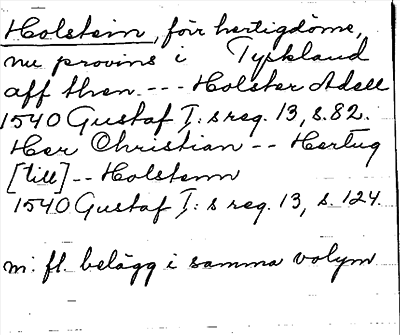 Holstein, förr hertigdöme,
nu provins i Tyskland
aff then --- Holster Adell
1540 Gustaf I:s reg. 13, s. 82.
Her Christian -- Hertug
[till] -- Holstenn
1540 Gustaf I:s reg. 13, s. 124.
m. fl. belägg i samma volym.